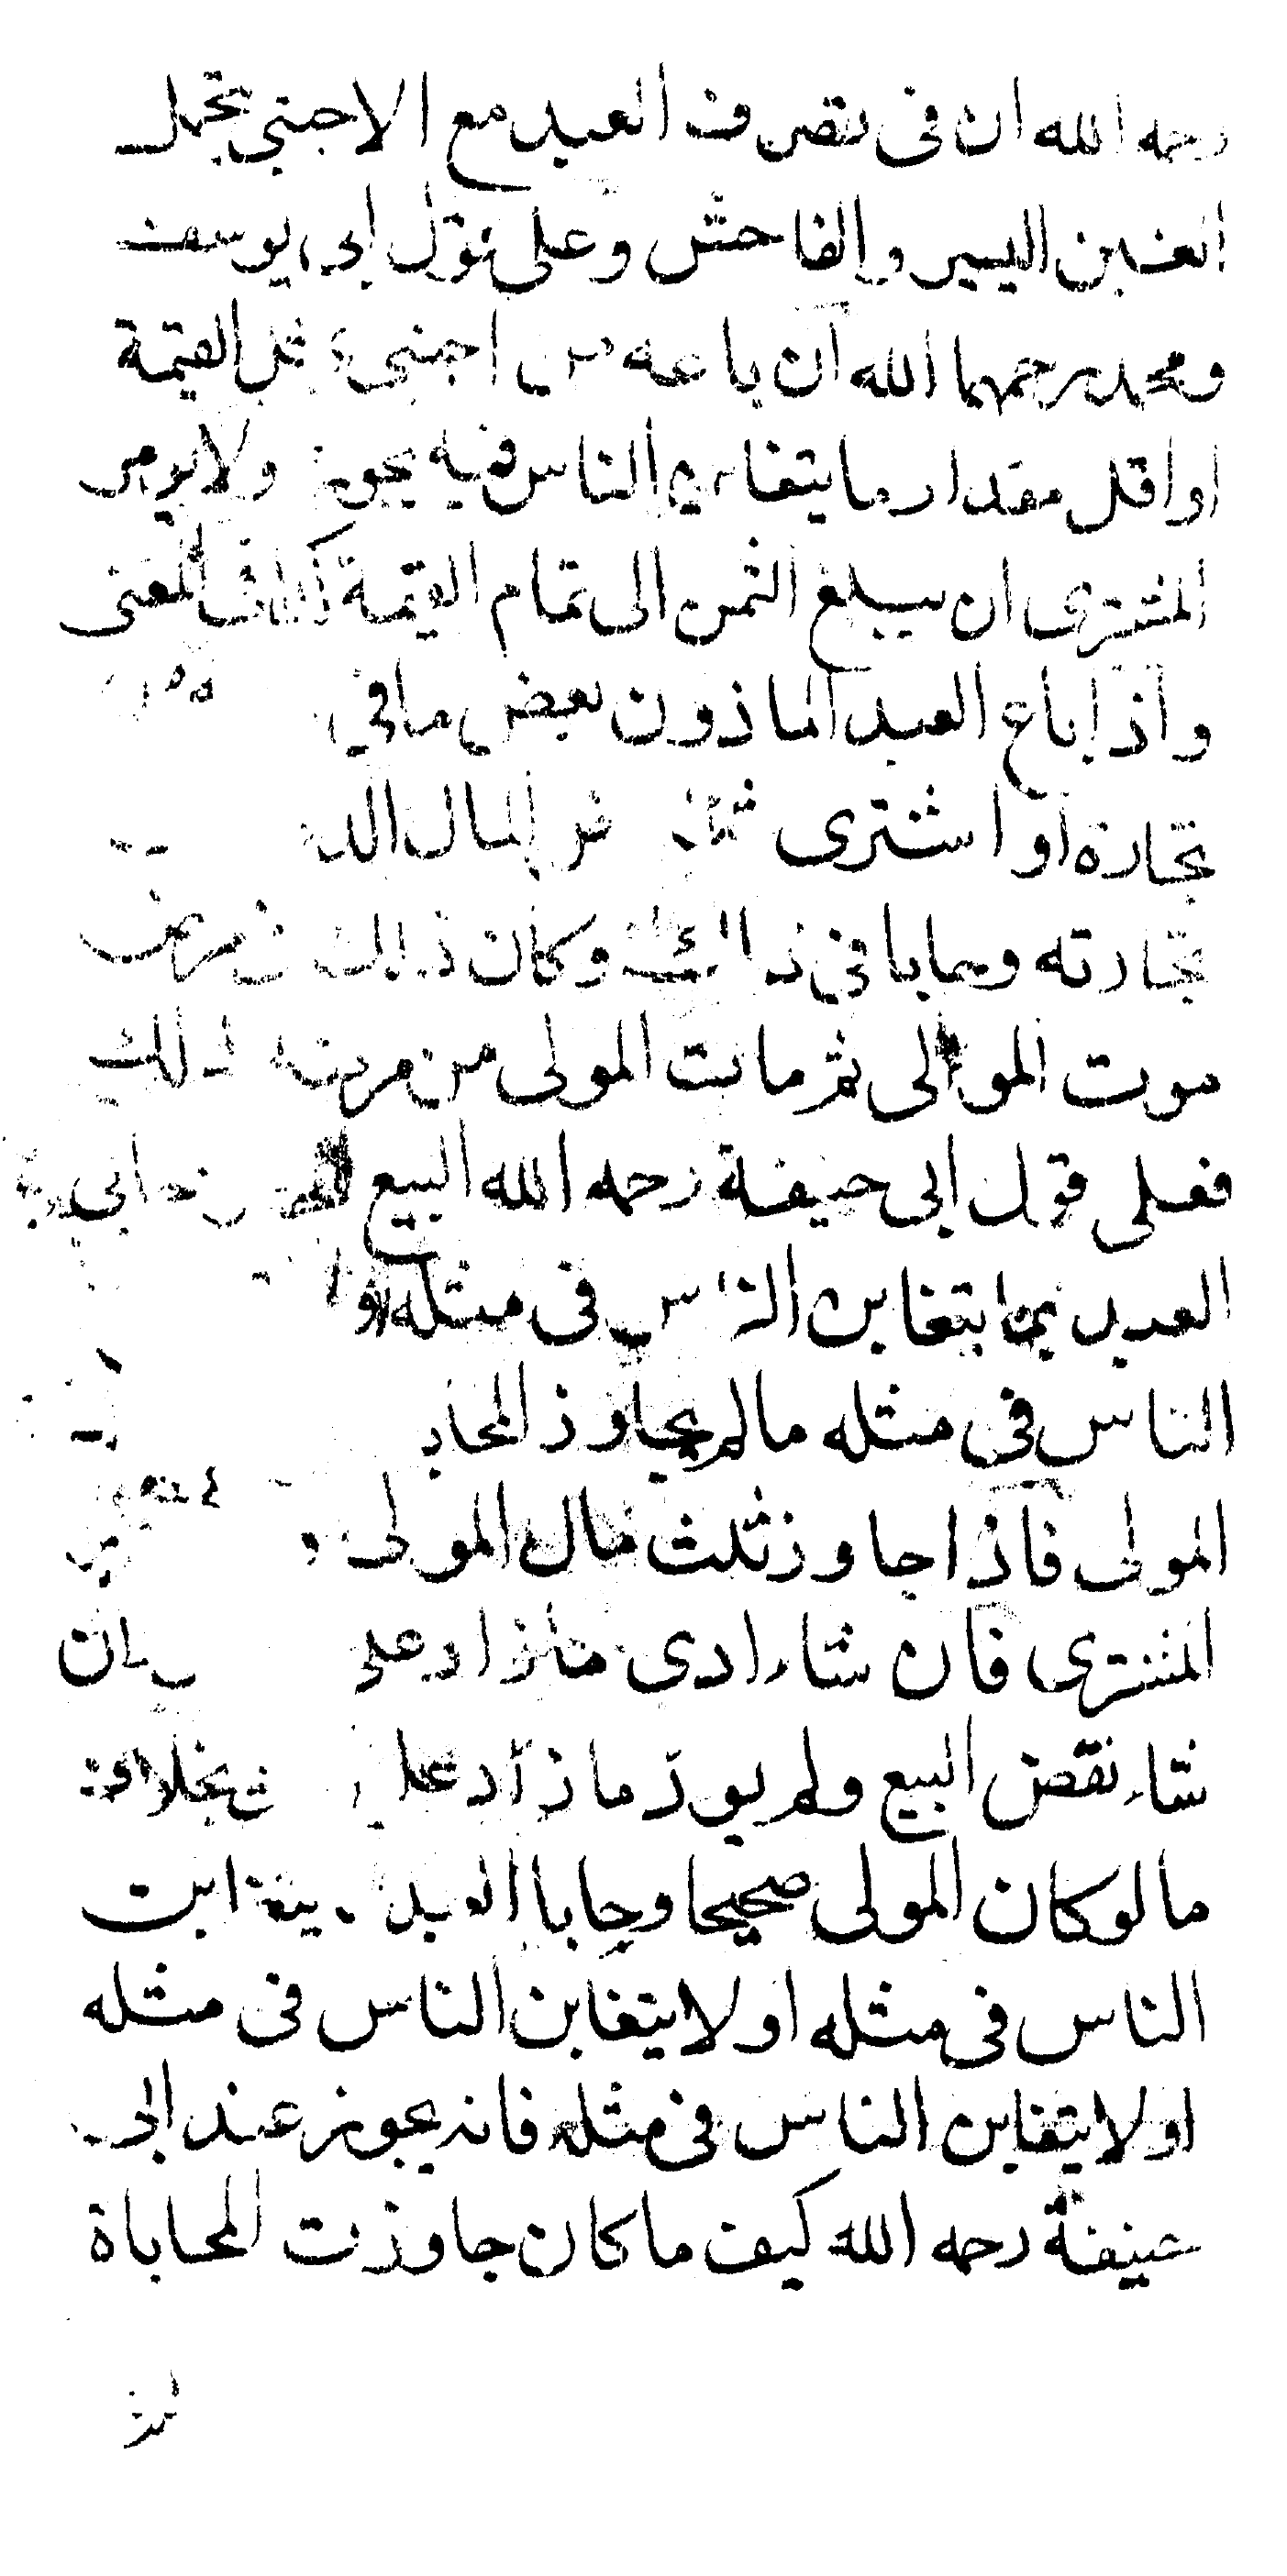 رحمه الله ان فى تصرف العبد مع الاجنبى يتحمل
الغبن اليسير والفاحش وعلى قول ابى يوسف
ومحمد رحمهما الله ان باعه من اجنبى بمثل القيمة
او اقل مقدار ما يتغابن الناس فيه يجوز ولا يومر
المشترى ان يبلغ الثمن الى تمام القيمة كذا فى المغنى
واذا باع العبد الماذون بعض ما فى
تجارة او اشترى شيئا من المال
تجارته وحابا فى ذلك وكان ذلك فى مرض
موت المولى ثم مات المولى من مرضه ذلك
فعلى قول ابى حنيفة رحمه الله البيع حابى
العبد بما يتغابن الناس فى مثله او
الناس فى مثله ما لم يجاوز
المولى فاذا جاوز ثلث مال المولى
المشترى فان شاء ادى ما زاد على وان
شاء نقض البيع ولم يود ما زاد على بخلاف
ما لو كان المولى صحيحا وحابا العبد يتغابن
الناس فى مثله او لا يتغابن الناس فى مثله
او لا يتغابن الناس فى مثله فانه يجوز عند ابى
حنيفة رحمه الله كيف ما كان جاوزت المحاباة